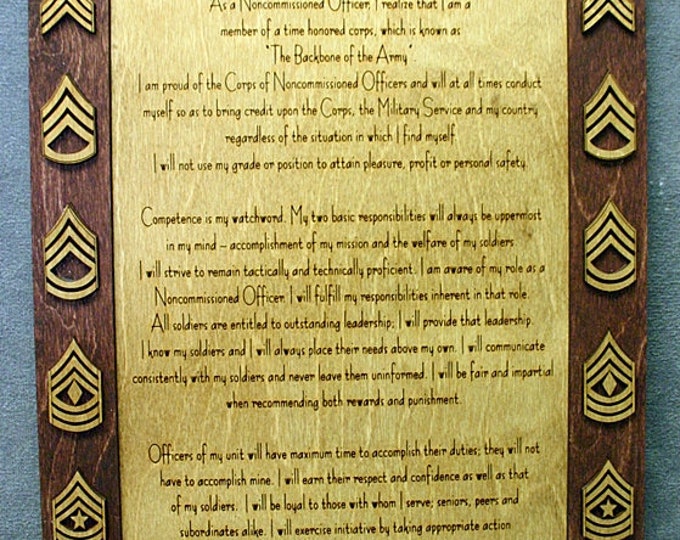 As a Noncommissioned Officer, I realize that I am a
member of a time honored corps, which is known as
"The Backbone of the Army"
I am proud of the Corps of Noncommissioned Officers and will at all times conduct
myself so as to bring credit upon the Corps, the Military Service and my country
regardless of the situation in which I find myself.
I will not use my grade or position to attain pleasure, profit or personal safety.
Competence is my watchword. My two basic responsibilities will always be uppermost
in my mind – accomplishment of my mission and the welfare of my soldiers.
I will strive to remain tactically and technically proficient. I am aware of my role as a
Noncommissioned Officer. I will fulfill my responsibilities inherent in that role.
All soldiers are entitled to outstanding leadership; I will provide that leadership.
I know my soldiers and I will always place their needs above my own. I will communicate
consistently with my soldiers and never leave them uninformed. I will be fair and impartial
when recommending both rewards and punishment.
Officers of my unit will have maximum time to accomplish their duties; they will not
have to accomplish mine. I will earn their respect and confidence as well as that
of my soldiers. I will be loyal to those with whom I serve; seniors, peers and
subordinates alike. I will exercise initiative by taking appropriate action